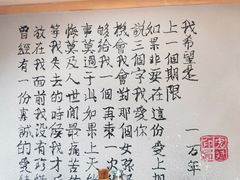 我希望是
一万年
上一個期限
如果非要在這份愛上加
說三個字我愛你
機會我會對那個女孩
夠給我一個再來一次
事莫過于此如果上天能
悔莫及人世間最痛苦的
等我失去的時候我才
放在我面前我沒有珍惜
曾經有一份真誠的愛情